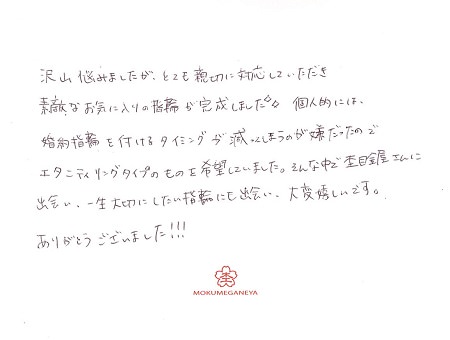 沢山悩みましたが、とても親切に対応していただき
素敵なお気に入りの指輪が完成しました✧✧ 個人的には、
婚約指輪を付けるタイミングが減ってしまうのが嫌だったので
エタニティリングタイプのものを希望していました。そんな中で杢目金屋さんに
出会い、一生大切にしたい指輪にも出会い、大変嬉しいです。
ありがとうございました!!!
MOKUMEGANEYA